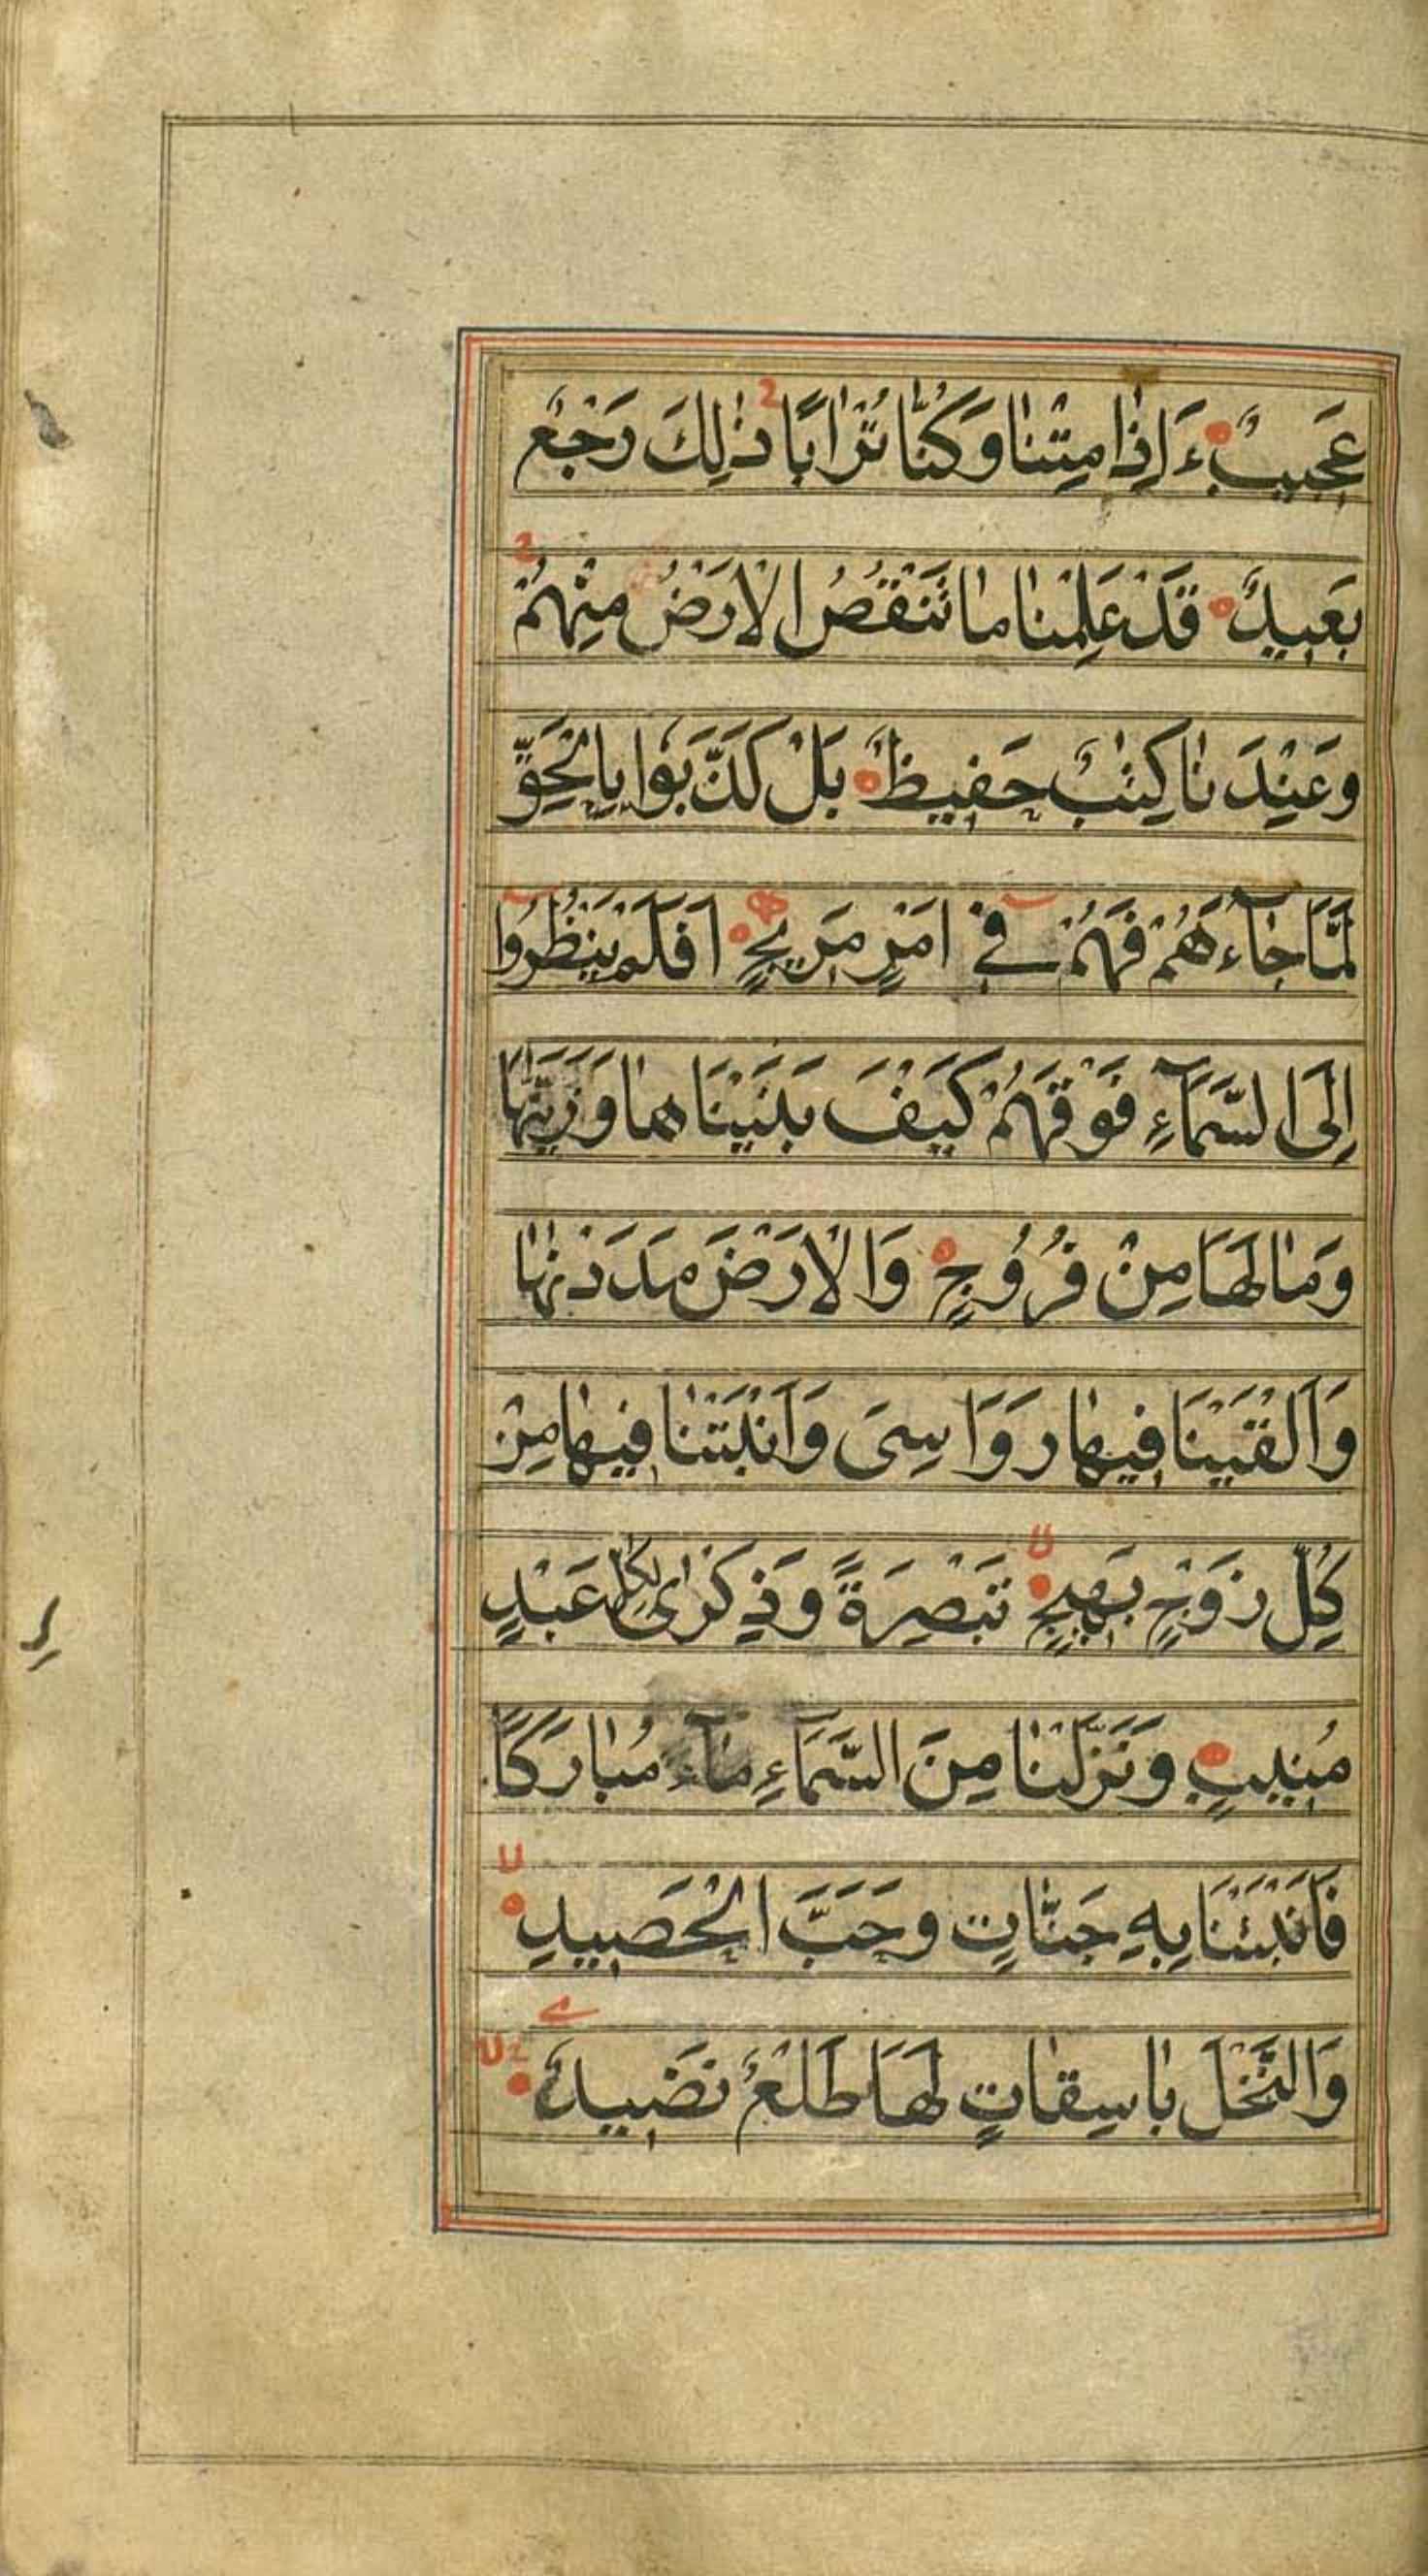 عَجِيبٌ ءَاِذٰا مِتْنٰا وَكُنّٰا تُرٰابًا ذٰلِكَ رَجْعٌ
بَعِيدٌ قَدْ عَلِمْنٰا مٰا تَنْقُصُ الْاَرْضُ مِنْهُمْ
وَعِنْدَنٰا كِتٰبٌ حَفِيظٌ بَلْ كَذَّبُوا بِالْحَقِّ
لَمَّا جٰاءَهُمْ فَهُمْ فِي اَمْرٍ مَرِيجٍ اَفَلَمْ يَنْظُرُوا
اِلَى السَّمَآءِ فَوْقَهُمْ كَيْفَ بَنَيْنَاهٰا وَزَيَّنّٰهَا
وَمٰا لَهَا مِنْ فُرُوجٍ وَالْاَرْضَ مَدَدْنٰهٰا
وَاَلْقَيْنَا فِيهٰا رَوَاسِىَ وَاَنْبَتْنٰا فِيهٰا مِنْ
كُلِّ زَوْجٍ بَهِيجٍ تَبْصِرَةً وَذِكْرٰى لِكُلِّ عَبْدٍ
مُنِيبٍ وَنَزَّلْنٰا مِنَ السَّمَآءِ مٰآءً مُبٰارَكًا
فَاَنْبَتْنَا بِهِ جَنّٰاتٍ وَحَبَّ الْحَصِيدِ
وَالنَّخْلَ بٰاسِقٰاتٍ لَهَا طَلْعٌ نَضِيدٌ